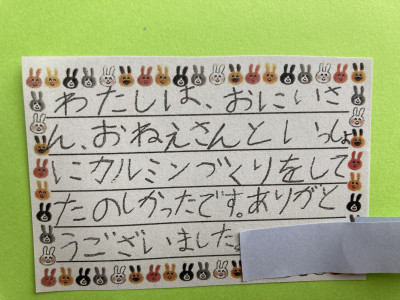 わたしは、おにいさ
ん、おねえさんといっしょ
にカルミンづくりをして
たのしかったです。ありがと
うございました。